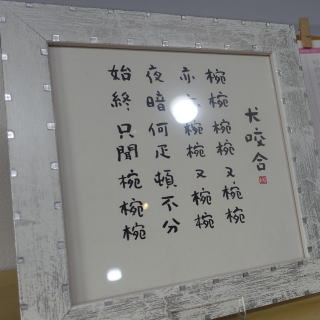 犬咬合
椀椀椀椀又椀椀
亦亦椀椀又椀椀
夜暗何疋頓不分
始終只聞椀椀椀